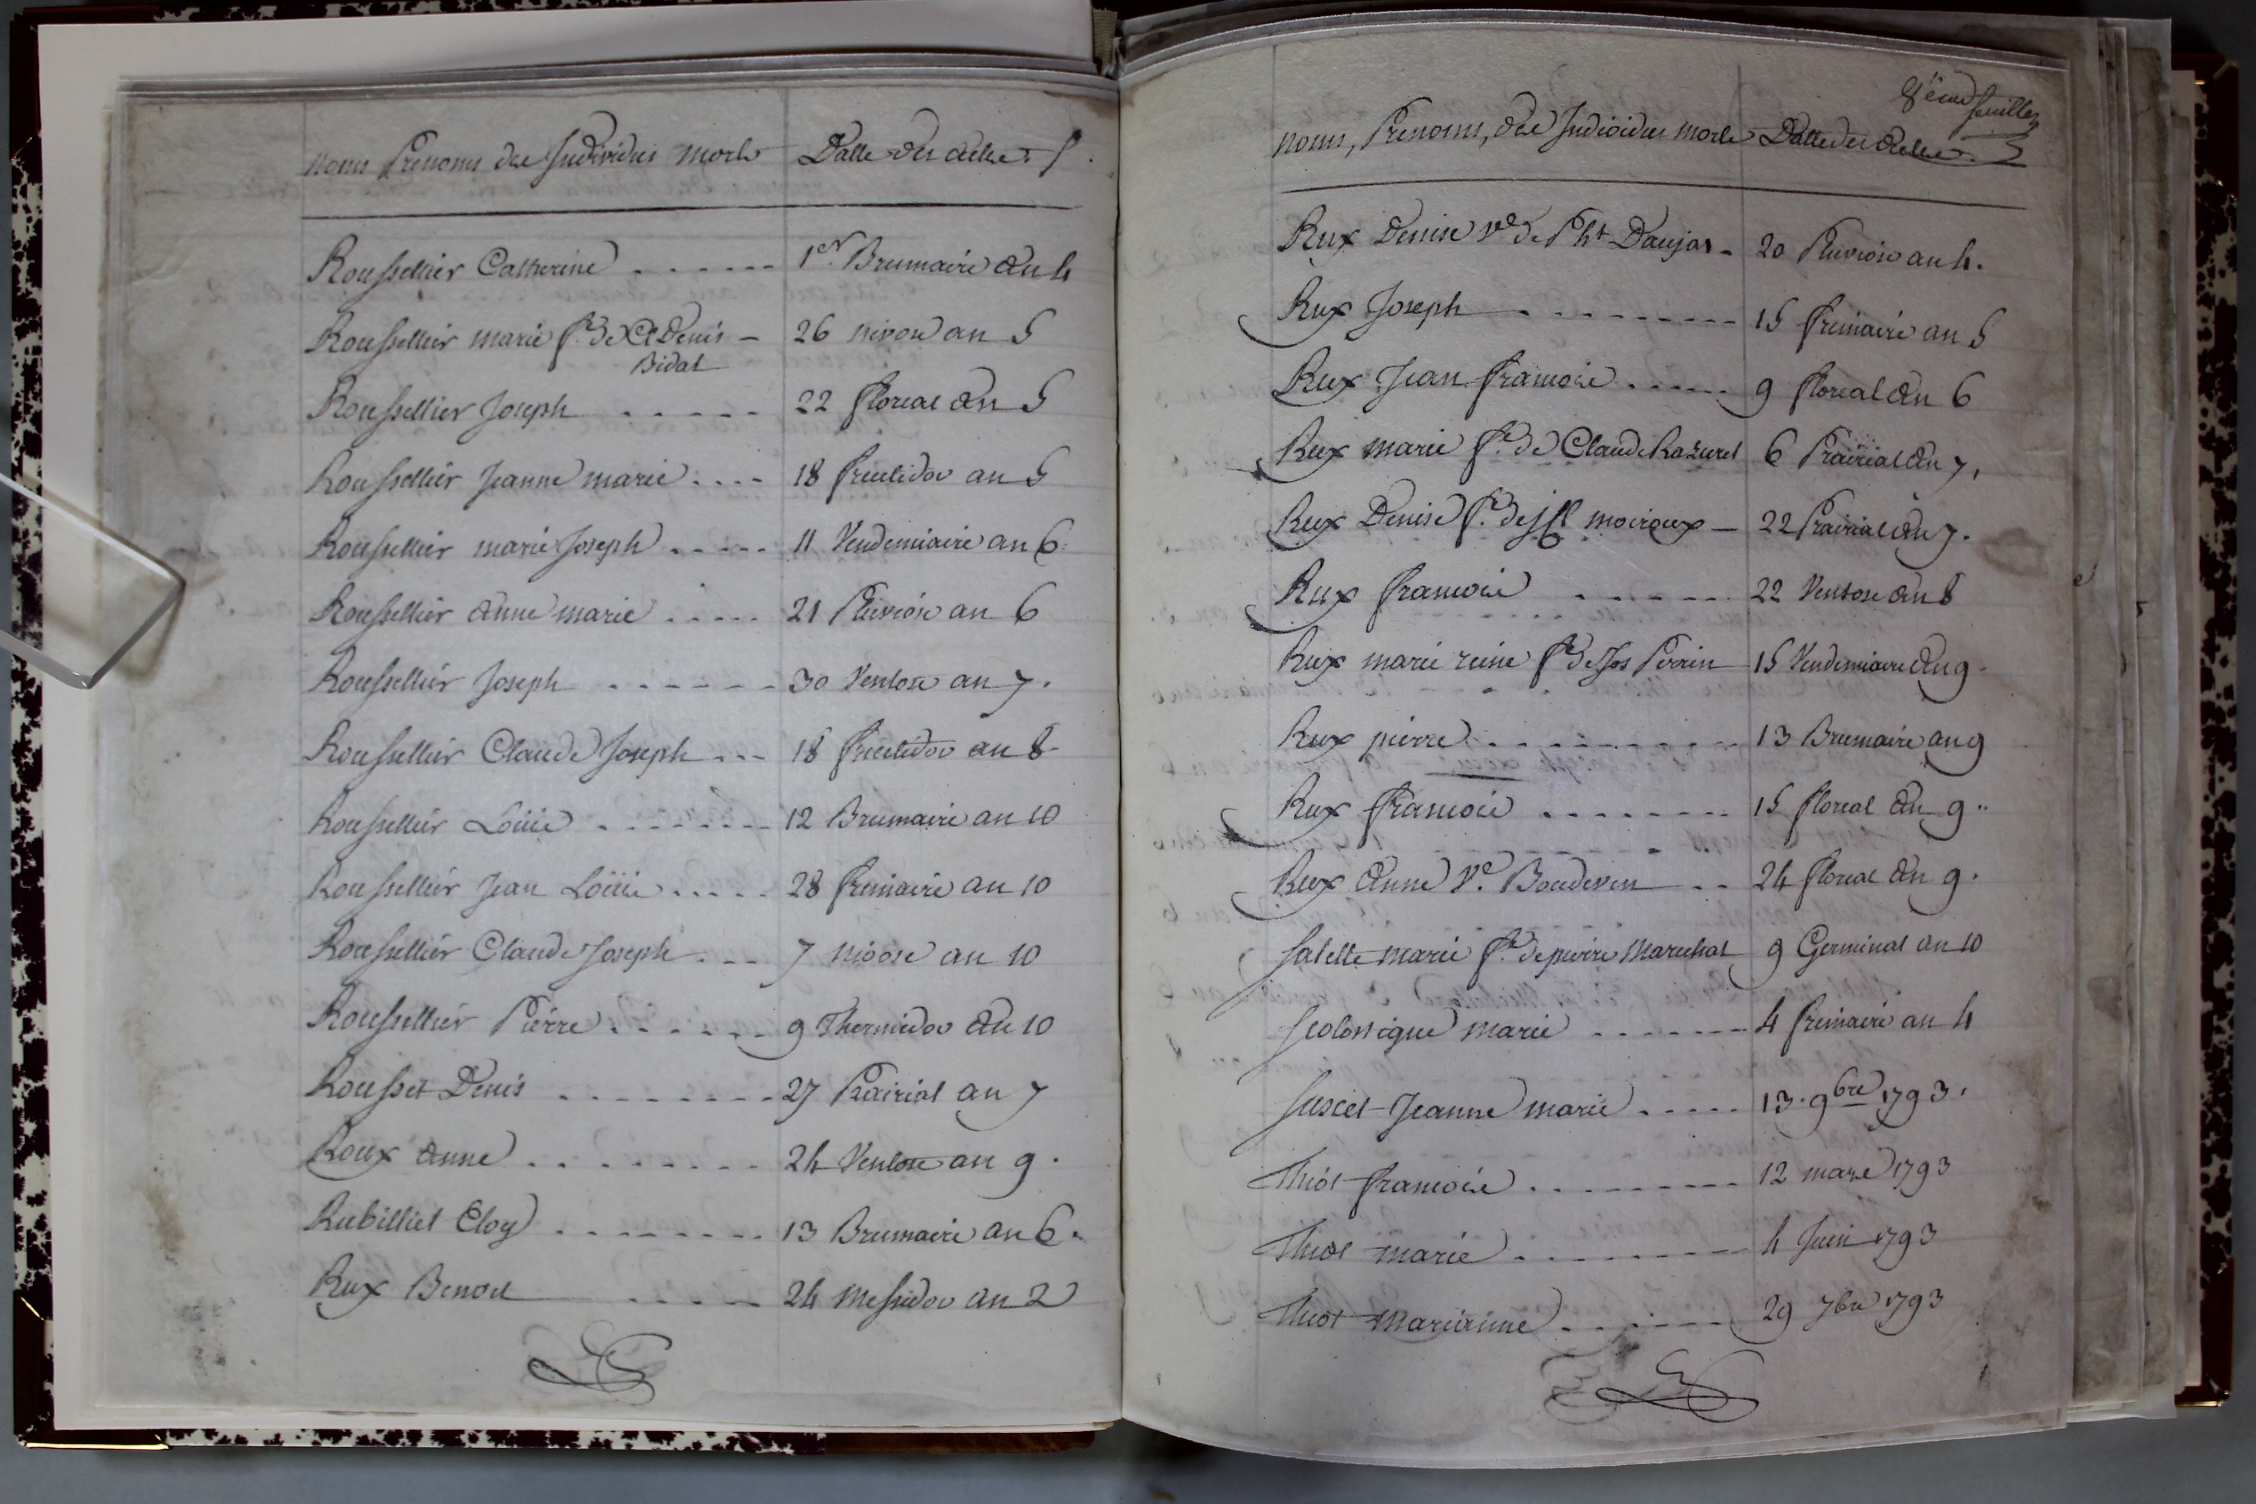 noms Prenoms des Individus morts Datte des actes
Roussellier Catherine 1er Brumaire an 4
Roussellier marie fe de Cl Denis 26 nivose an 5
Bidal
Roussellier Joseph 22 floreal an 5
Roussellier Jeanne marie 18 fructidor an 5
Roussellier marie Joseph 11 Vendemiaire an 6
Roussellier anne marie 21 Pluviose an 6
Roussellier Joseph 30 Ventose an 7.
Roussellier Claude Joseph 18 fructidor an 8
Roussellier Loüise 12 Brumaire an 10
Roussellier Jean Loüis 28 frimaire an 10
Roussellier Claude Joseph 7 nivose an 10
Roussellier Pierre 9 Thermidor an 10
Rousset Denis 27 Prairial an 7
Roux anne 24 Ventose an 9.
Rubilliet Eloy 13 Brumaire an 6.
Rux Benoit 24 Messidor an 2
8eme feuillet
noms, Prenoms, des Individus morts Datte des actes.
Rux Denise ve de Pht Daujat 20 Pluviose an 4.
Rux Joseph 15 frimaire an 5
Rux Jean francois 9 floreal an 6
Rux marie fe de Claude Razurel 6 Prairial an 7,
Rux Denise fe de moiroux 22 Prairial an 7.
Rux francois 22 Ventose an 8
Rux marie reine fe de Jos Perrin 15 Vendemiaire an 9
Rux pierre 13 Brumaire an 9
Rux francois 15 floreal an 9.
Rux anne Ve. Boudevin 24 floreal an 9.
Salette marie fe. de pierre Marechal 9 Germinal an 10
marie 4 frimaire an 4
Suscet Jeanne marie 13. 9bre 1793.
Thiot francoise 12 mars 1793
Thiot marie 4 Juin 1793
Thiot 29 7bre 1793